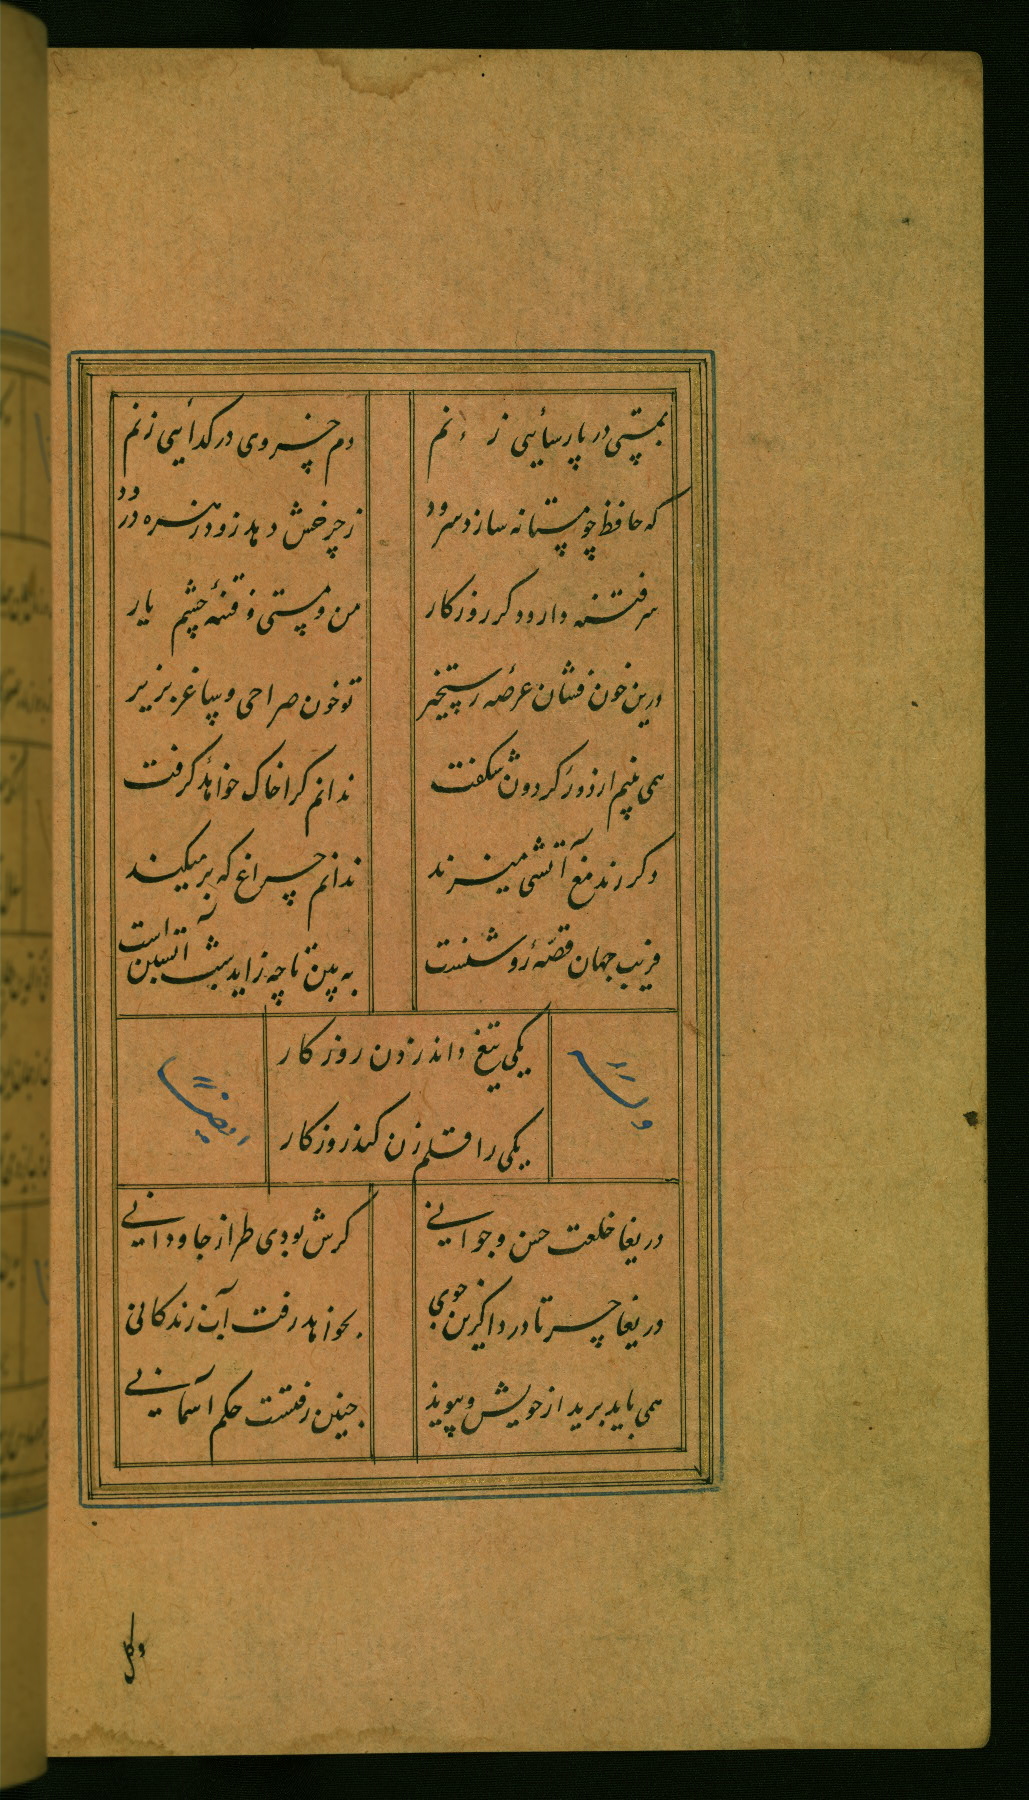 بمستی در پارسایی زنم
دم خسروی در گدایی زنم
که حافظ چو مستانه سازد سرود
ز چرخش دهد زود زهره درود
سر فتنه دارد دگر روزکار
من و مستی و فتنهٔ چشم یار
درین خون فشان عرصهٔ رستخیز
تو خون صراحی و ساغر بریز
همی بینم از دور گردون شگفت
ندانم کرا خاک خواهد گرفت
دگر رند مغ آتشی میزند
ندانم چراغ که بر میکند
فریب جهان قصهٔ روشنست
به بین تا چه زاید شب آبستن است
یکی تیغ داند زدن روز کار
یکی را قلم زن کند روزکار
وله
ایضا
دریغا خلعت حسن و جوانی
گرش بودی طراز جاودانی
دریغا حسرتا دردا کزین جوی
بخواهد رفت آب زندکانی
همی باید برید از خویش و پیوند
چنین رفتست حکم آسمانی
وکل